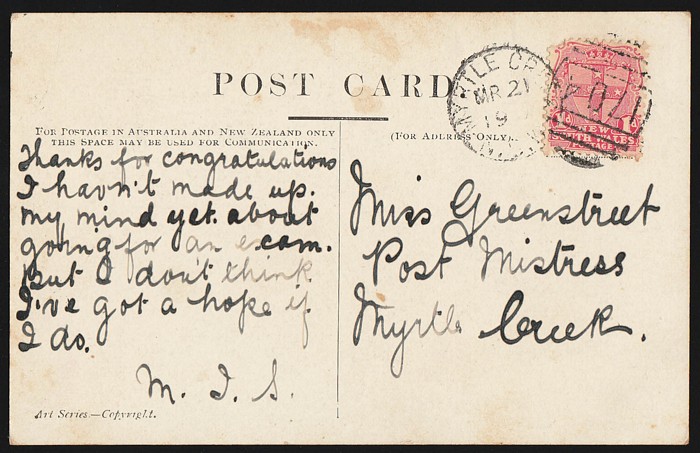 POST CARD
FOR POSTAGE IN AUSTRALIA AND NEW ZEALAND ONLY
THIS SPACE MAY BE USED FOR COMMUNICATION.
(FOR ADDRESS ONLY).
MYRTLE CREEK
MR 21
19
NEW
SOUTH WALES
POSTAGE
Thanks for congratulations
I havn't made up.
my mind yet about
going for an exam.
but I don't think
I've got a hope if
I do.
M. I. S.
Miss Greenstreet
Post Mistress
Myrtle Creek.
Art Series—Copyright.